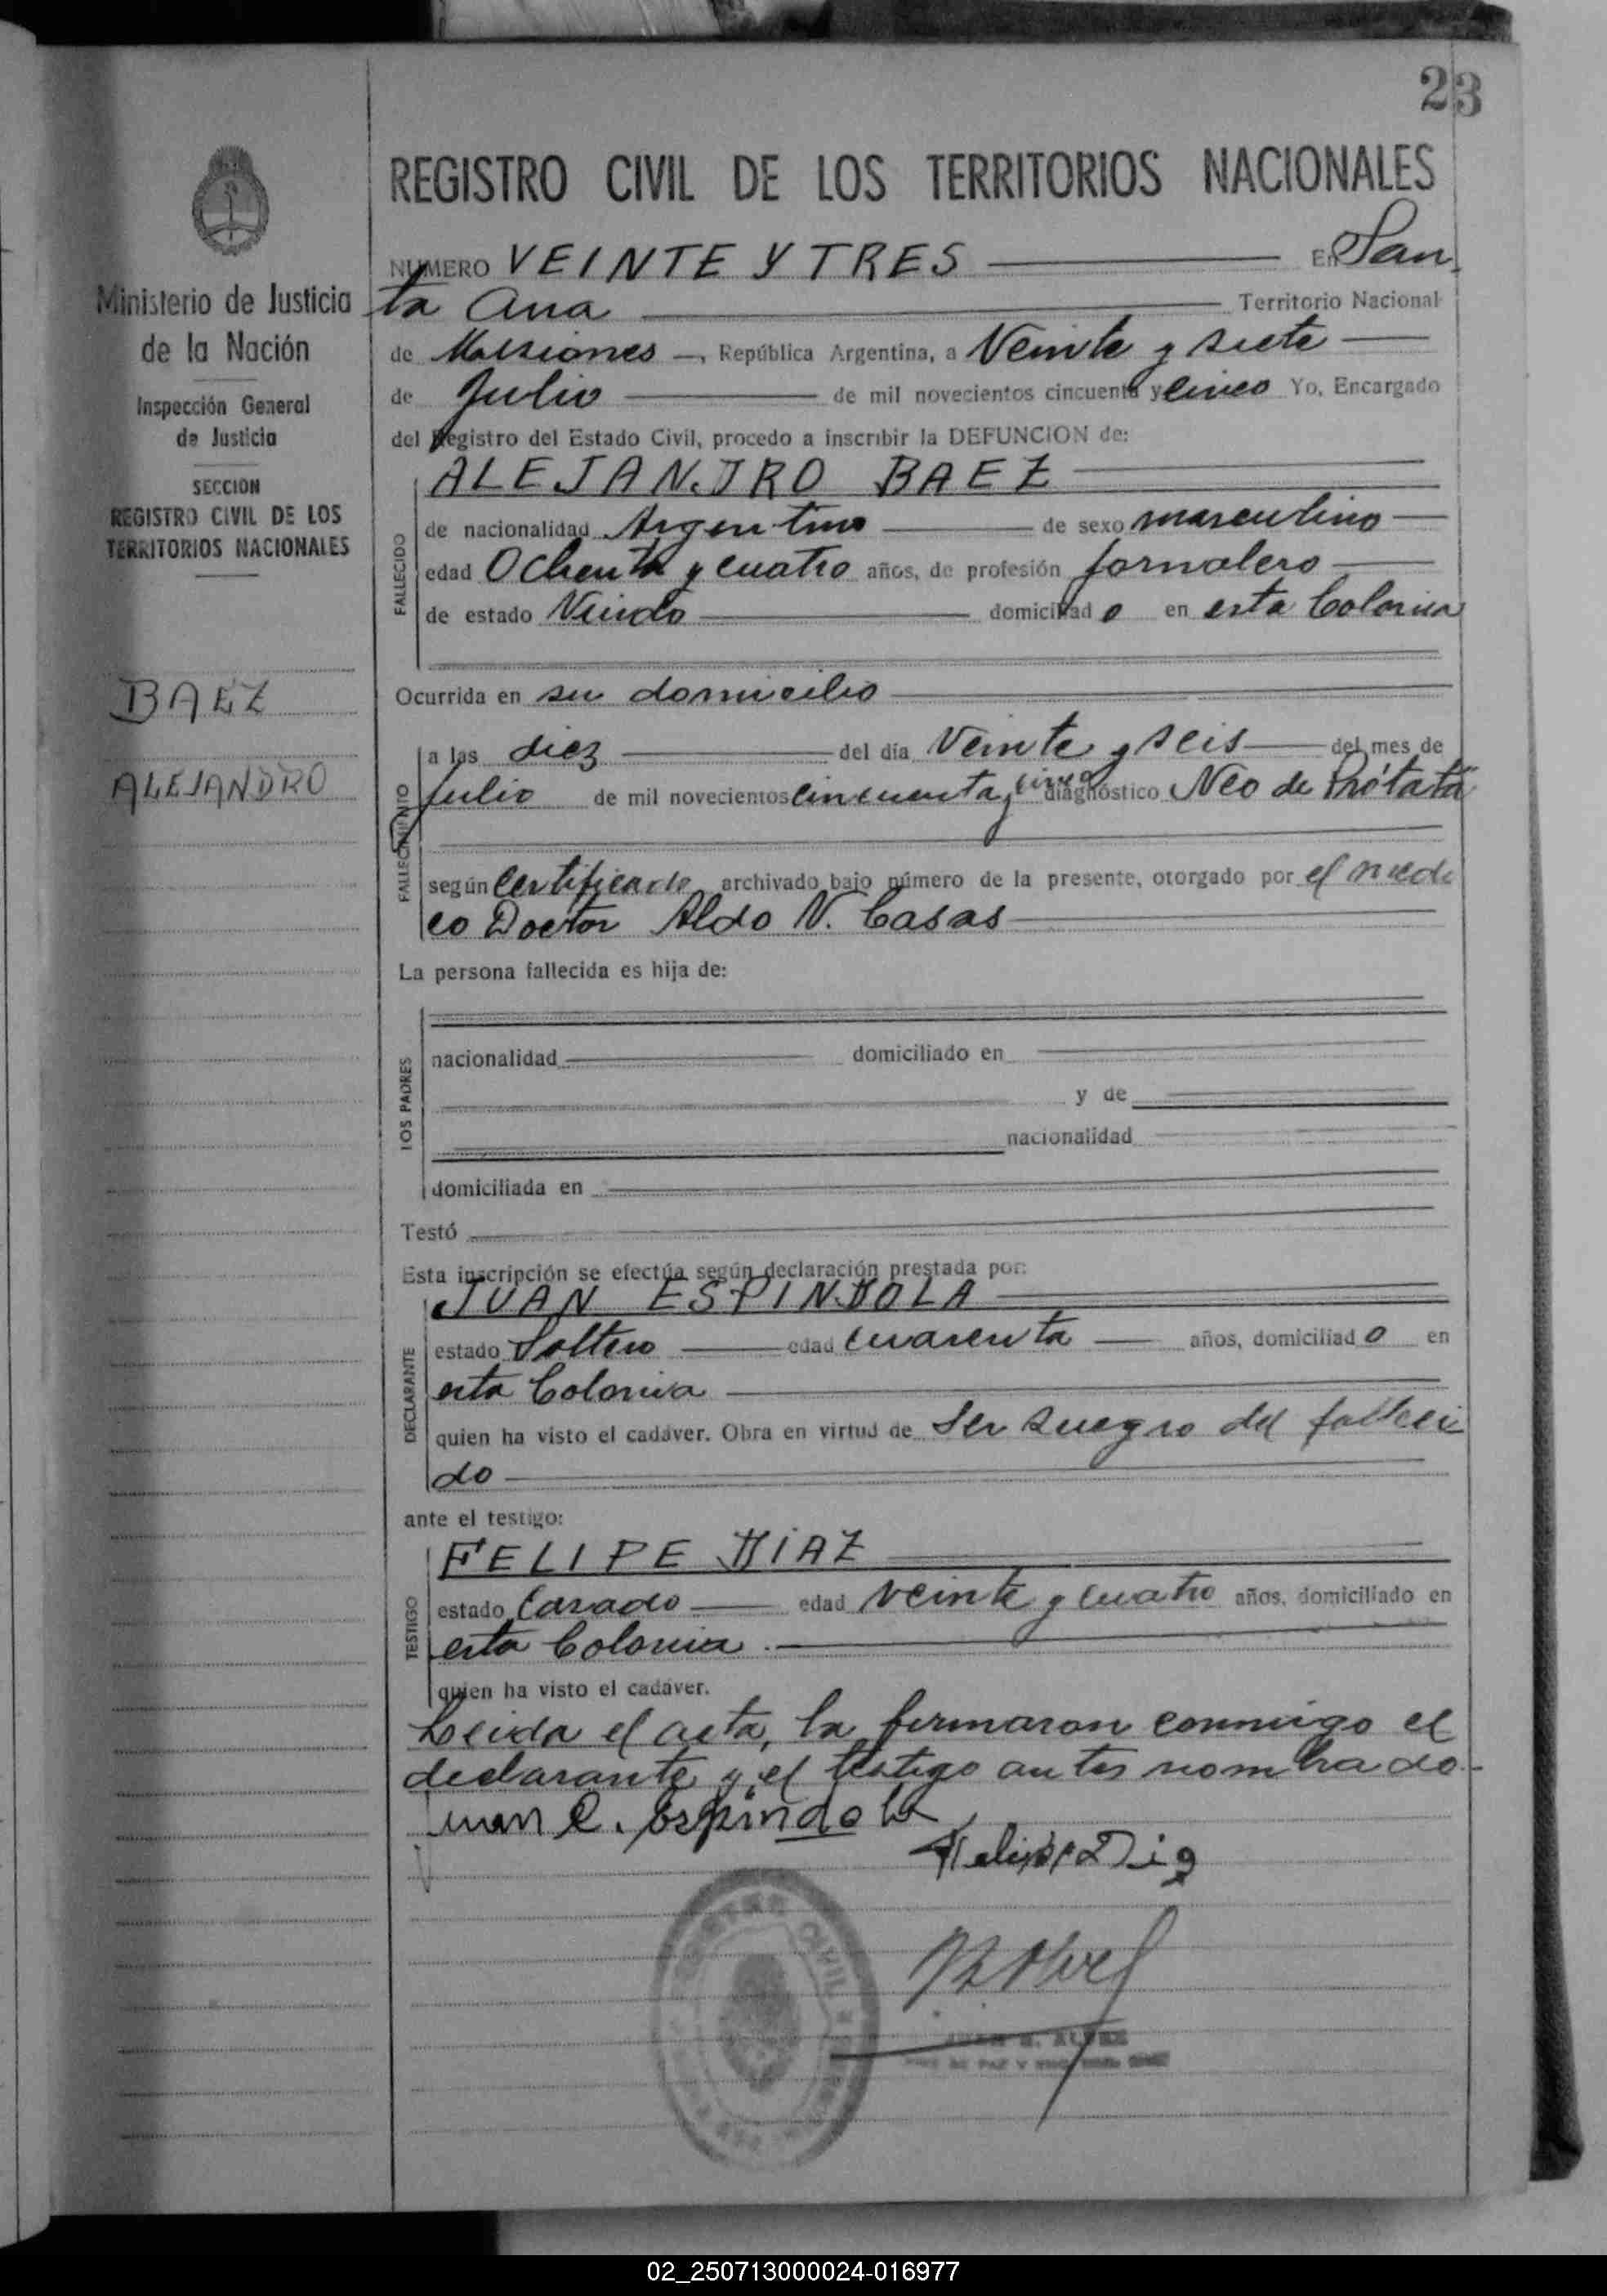 23
REGISTRO CIVIL DE LOS TERRITORIOS NACIONALES
NUMERO VEINTE Y TRES En San
ta Ana Territorio Nacional
de Misiones, República Argentina, a Veinte y siete
de Julio de mil novecientos cincuenta y cinco Yo, Encargado
del Registro del Estado Civil, procedo a inscribir la DEFUNCION de:
Ministerio de Justicia
de la Nación
Inspección General
de Justicia
SECCION
REGISTRO CIVIL DE LOS
TERRITORIOS NACIONALES
BAEZ
ALEJANDRO
FALLECIDO
ALEJANDRO BAEZ
de nacionalidad Argentino de sexo masculino
edad Ochenta y cuatro años, de profesión jornalero
de estado Viudo domiciliado en esta Colonia
Ocurrida en su domicilio
FALLECIMIENTO
a las diez del día Veinte y seis del mes de
Julio de mil novecientos cincuenta y cinco diagnóstico Neo de Prótata
según Certificado archivado bajo número de la presente, otorgado por el medi
co Doctor Aldo N. Casas
La persona fallecida es hija de:
LOS PADRES
nacionalidad domiciliado en
y de
nacionalidad
domiciliada en
Testó
Esta inscripción se efectúa según declaración prestada por:
DECLARANTE
JUAN ESPINDOLA
estado Soltero edad cuarenta años, domiciliado en
esta Colonia
quien ha visto el cadáver. Obra en virtud de Ser suegro del falleci
do
ante el testigo:
TESTIGO
FELIPE DIAZ
estado Casado edad veinte y cuatro años, domiciliado en
esta Colonia.
quien ha visto el cadáver.
Leida el acta, la firmaron conmigo el
declarante y el testigo antes nombrado.-
Juan C. Espindola
Felipe Dia
REGISTRO CIVIL
02_250713000024-016977